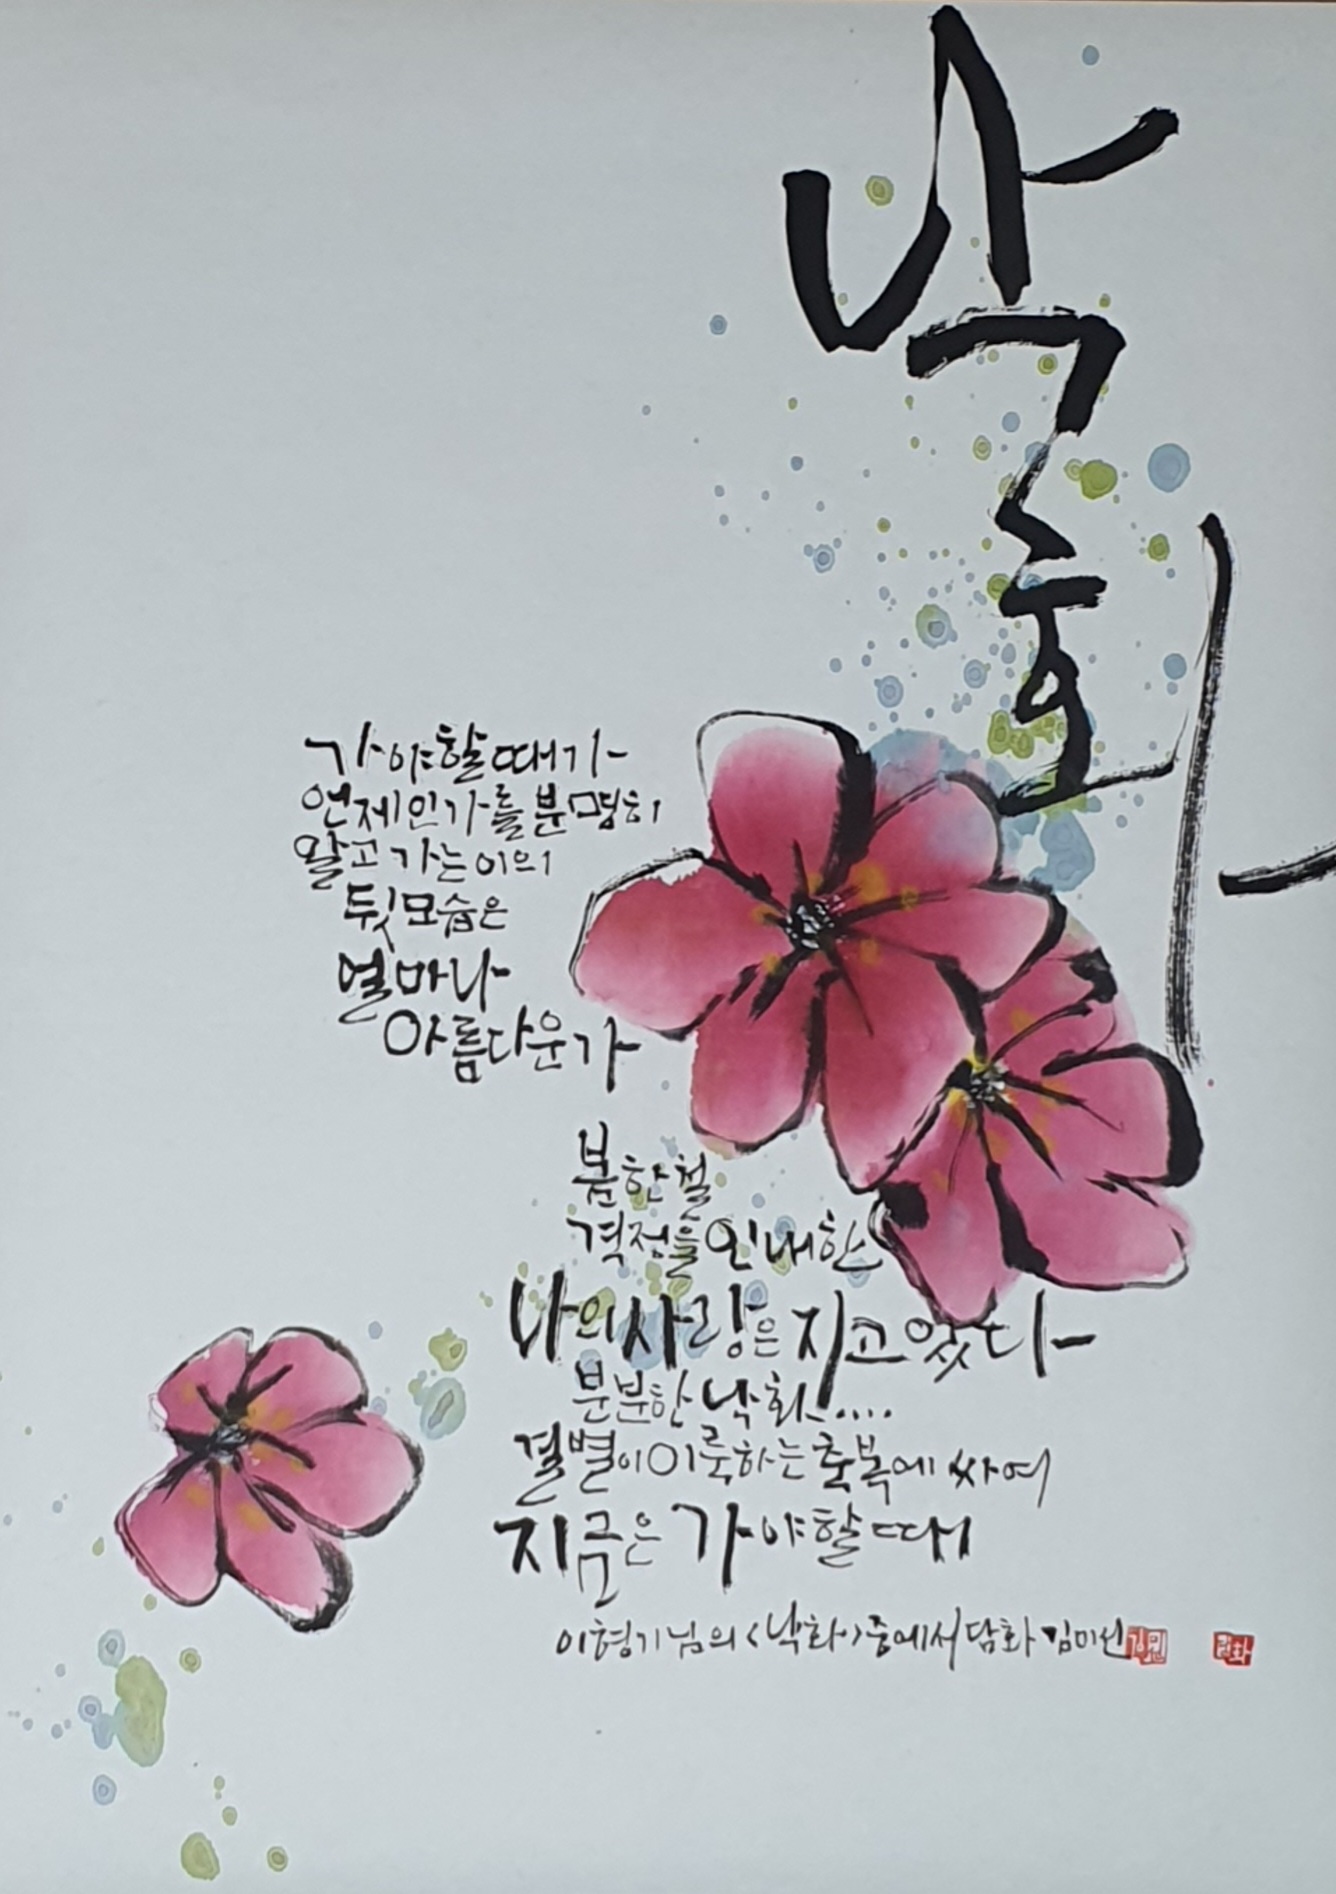 낙화
가야할 때가
언제인가를 분명히
알고 가는 이의
뒷모습은
얼마나
아름다운가
봄 한철
격정을 인내한
나의 사랑은 지고 있다
분분한 낙화....
결별이 이룩하는 축복에 싸여
지금은 가야할 때
이형기님의 <낙화>중에서 담화 김미선